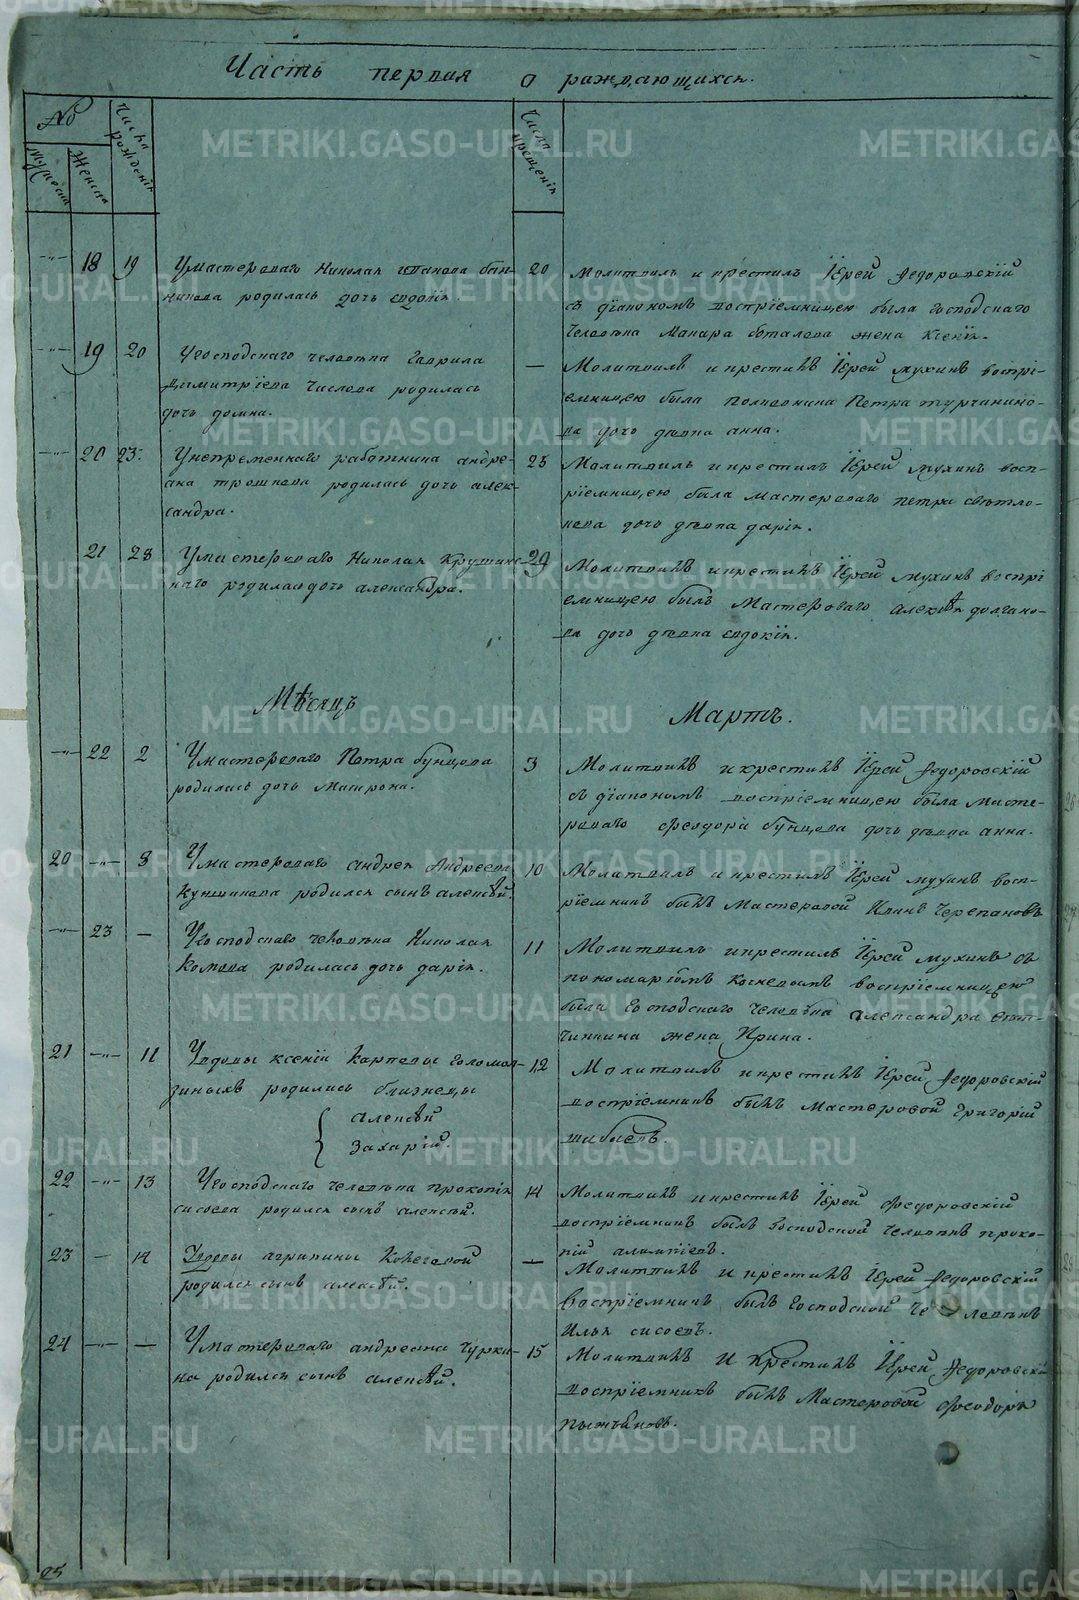 Часть первая о раждающихся.
№
Мужеска
Женска
Числа рожденія
Числа крещенія
18 19 У мастероваго Николая Степанова бан-
никова родилась дочь евдокія.
20 Молитвилъ и крестилъ Іерей Федоровскій
съ діакономъ воспріемницею была господскаго
человѣка Макара боталова жена Ксенія.
19 20 У господскаго человѣка Гаврила
Димитріева Числова родилась
дочь домна.
— Молитвилъ и крестилъ Іерей мухинъ воспрі-
емницею была полковника Петра турчанино-
ва дочь дѣвка анна.
20 23 У непременнаго работника андре-
яна трошкова родилась дочь алек-
сандра.
25 Молитвилъ и крестилъ Іерей мухинъ восп-
ріемницею была мастероваго петра свѣтла-
кова дочь дѣвка дарія.
21 28 У мастероваго Николая Крутинс-
каго родилась дочь александра.
29 Молитвилъ и крестилъ Іерей мухинъ воспрі
емницею былъ Мастероваго алексѣя долгано-
ва дочь дѣвка евдокія.
Мѣсяцъ Мартъ.
22 2 У мастероваго Петра бунцова
родилась дочь Матрона.
3 Молитвилъ и крестилъ Іерей Федоровскій
съ діакономъ воспріемницею была масте-
роваго Феодора бунцова дочь дѣвка анна.
20 8 У мастероваго андрея Андреева
Кушникова родился сынъ алексѣй.
10 Молитвилъ и крестилъ Іерей мухинъ восп-
ріемникъ былъ мастеровой Иванъ Черепановъ
23 — У господскаго человѣка Николая
Комова родилась дочь дарія.
11 Молитвилъ и крестилъ Іерей мухинъ съ
пономарѣмъ воспріемницею
была господскаго человѣка александра
жена Ирина.
21 11 У вдовы ксеніи Карповы голомол-
зиныхъ родились близнецы
алексѣй
Захарій.
12 Молитвилъ и крестилъ Іерей Федоровскій
воспріемникъ былъ мастеровой григорій
шибаевъ.
22 13 У господскаго человѣка прокопія
сисоева родился сынъ алексѣй.
14 Молитвилъ и крестилъ Іерей Федоровскій
воспріемникъ былъ господской человѣкъ проко-
пій алампіевъ.
23 — 14 У вдовы агрипины Кочегаовой
родился сынъ алексѣй.
— Молитвилъ и крестилъ Іерей Федоровскій
воспріемникъ былъ господской человѣкъ
Илья сисоевъ.
24 — У мастероваго андреяна Чурки-
на родился сынъ алексѣй.
15 Молитвилъ и крестилъ Іерей Федоровскій
воспріемникъ былъ мастеровой Феодоръ
пыжьяновъ.
25
METRIKI.GASO-URAL.RU